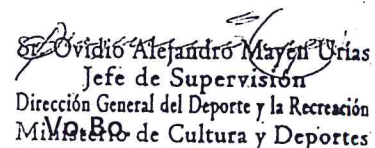 Sr. Ovidio Alejandro Mayén Urías
Jefe de Supervisión
Dirección General del Deporte y la Recreación
Ministerio de Cultura y Deportes
Vo.Bo.